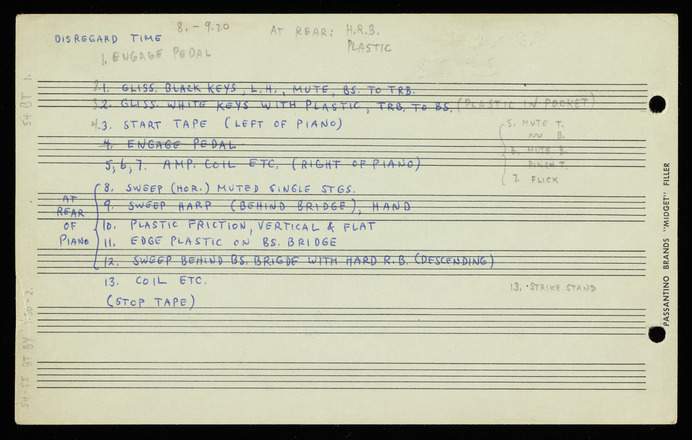 8. - 9.20
DISREGARD TIME
AT REAR: H.R.B.
PLASTIC
1. ENGAGE PEDAL
2.1. GLISS. BLACK KEYS, L.H., MUTE, BS. TO TRB.
3.2. GLISS. WHITE KEYS WITH PLASTIC, TRB. TO BS. (PLASTIC IN POCKET)
4.3. START TAPE (LEFT OF PIANO)
4. ENGAGE PEDAL
5, 6, 7. AMP. COIL ETC. (RIGHT OF PIANO)
5. MUTE T.
B.
6. MUTE B.
PINCH T.
7. FLICK
AT REAR OF PIANO
8. SWEEP (HOR.) MUTED SINGLE STGS.
9. SWEEP HARP (BEHIND BRIDGE), HAND
10. PLASTIC FRICTION, VERTICAL & FLAT
11. EDGE PLASTIC ON BS. BRIDGE
12. SWEEP BEHIND BS. BRIGDE WITH HARD R.B. (DESCENDING)
13. COIL ETC.
13. STRIKE STAND
(STOP TAPE)
PASSANTINO BRANDS "MIDGET" FILLER